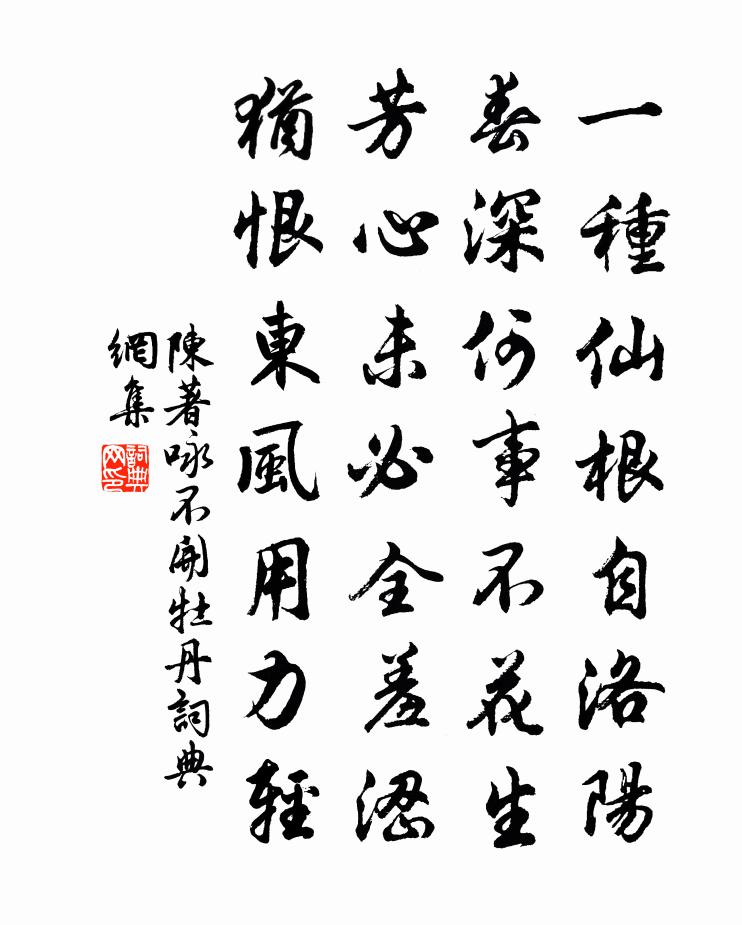 一種仙根自洛陽
春深何事不花生
芳心未必全羞涩
猶恨東風用力輕
陳著咏不開牡丹詞典
網集
詞典
网印